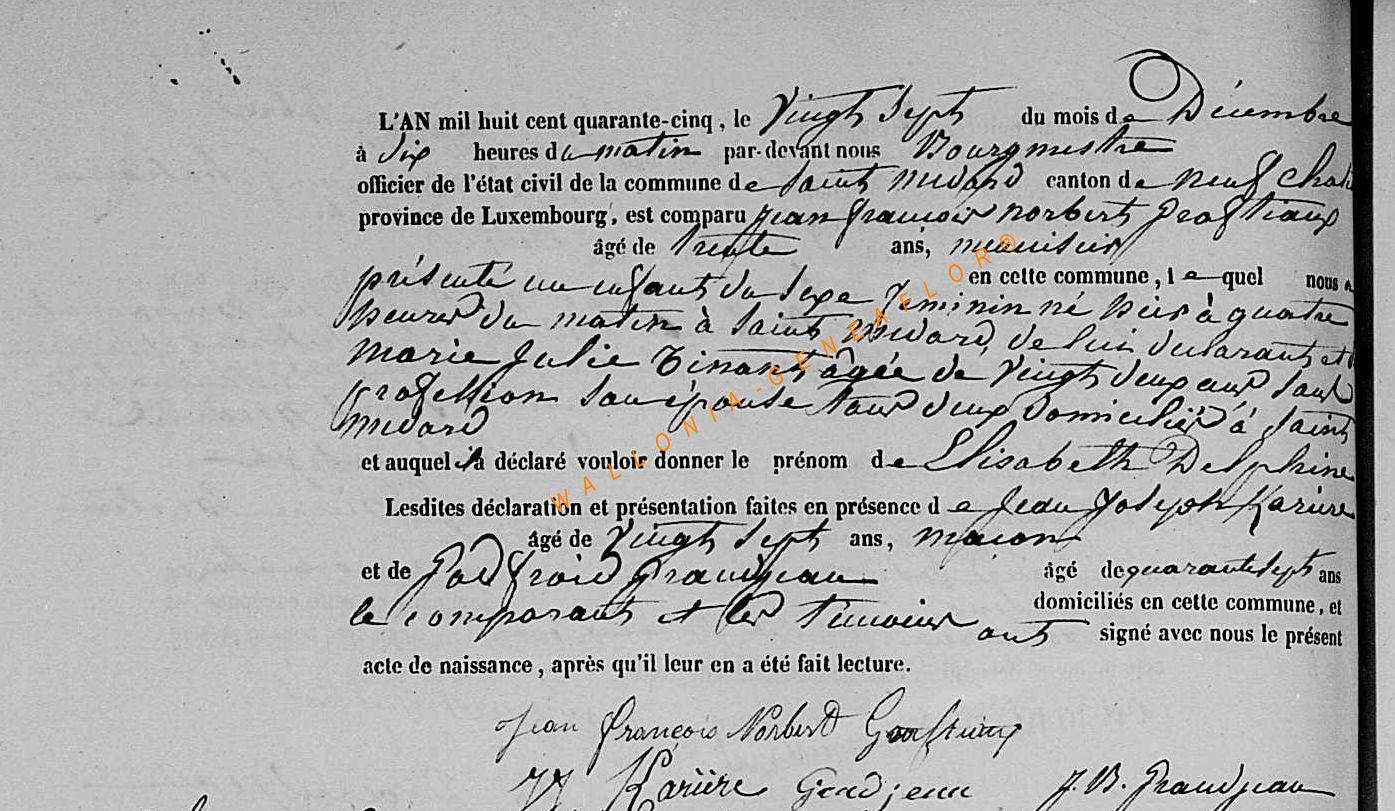 L'AN mil huit cent quarante-cinq, le Vingt Sept du mois de Décembre
à dix heures du matin par-devant nous Bourgmestre
officier de l'état civil de la commune de Saint Médard canton de neuf chat
province de Luxembourg, est comparu Jean francois norbert
âgé de trente ans, menuisier
en cette commune, lequel nous a
présenté un enfant du sexe feminin né hier à quatre
heures du matin à Saint Médard, de lui declarant et
marie Julie Tinant âgée de Vingt deux ans sans
profession son épouse tous deux domiciliés à Saint
médard
et auquel il a déclaré vouloir donner le prénom de Elisabeth Delphine
Lesdites déclaration et présentation faites en présence de Jean Joseph Karière
âgé de Vingt Sept ans, macon
et de Godfroid Grandjean âgé de quarante sept ans
domiciliés en cette commune, et
le comparant et les témoins ont signé avec nous le présent
acte de naissance, après qu'il leur en a été fait lecture.
Jean François Norbert
JJ Karière J. B. Grandjean
WALLONIA-GENEAFLOR®